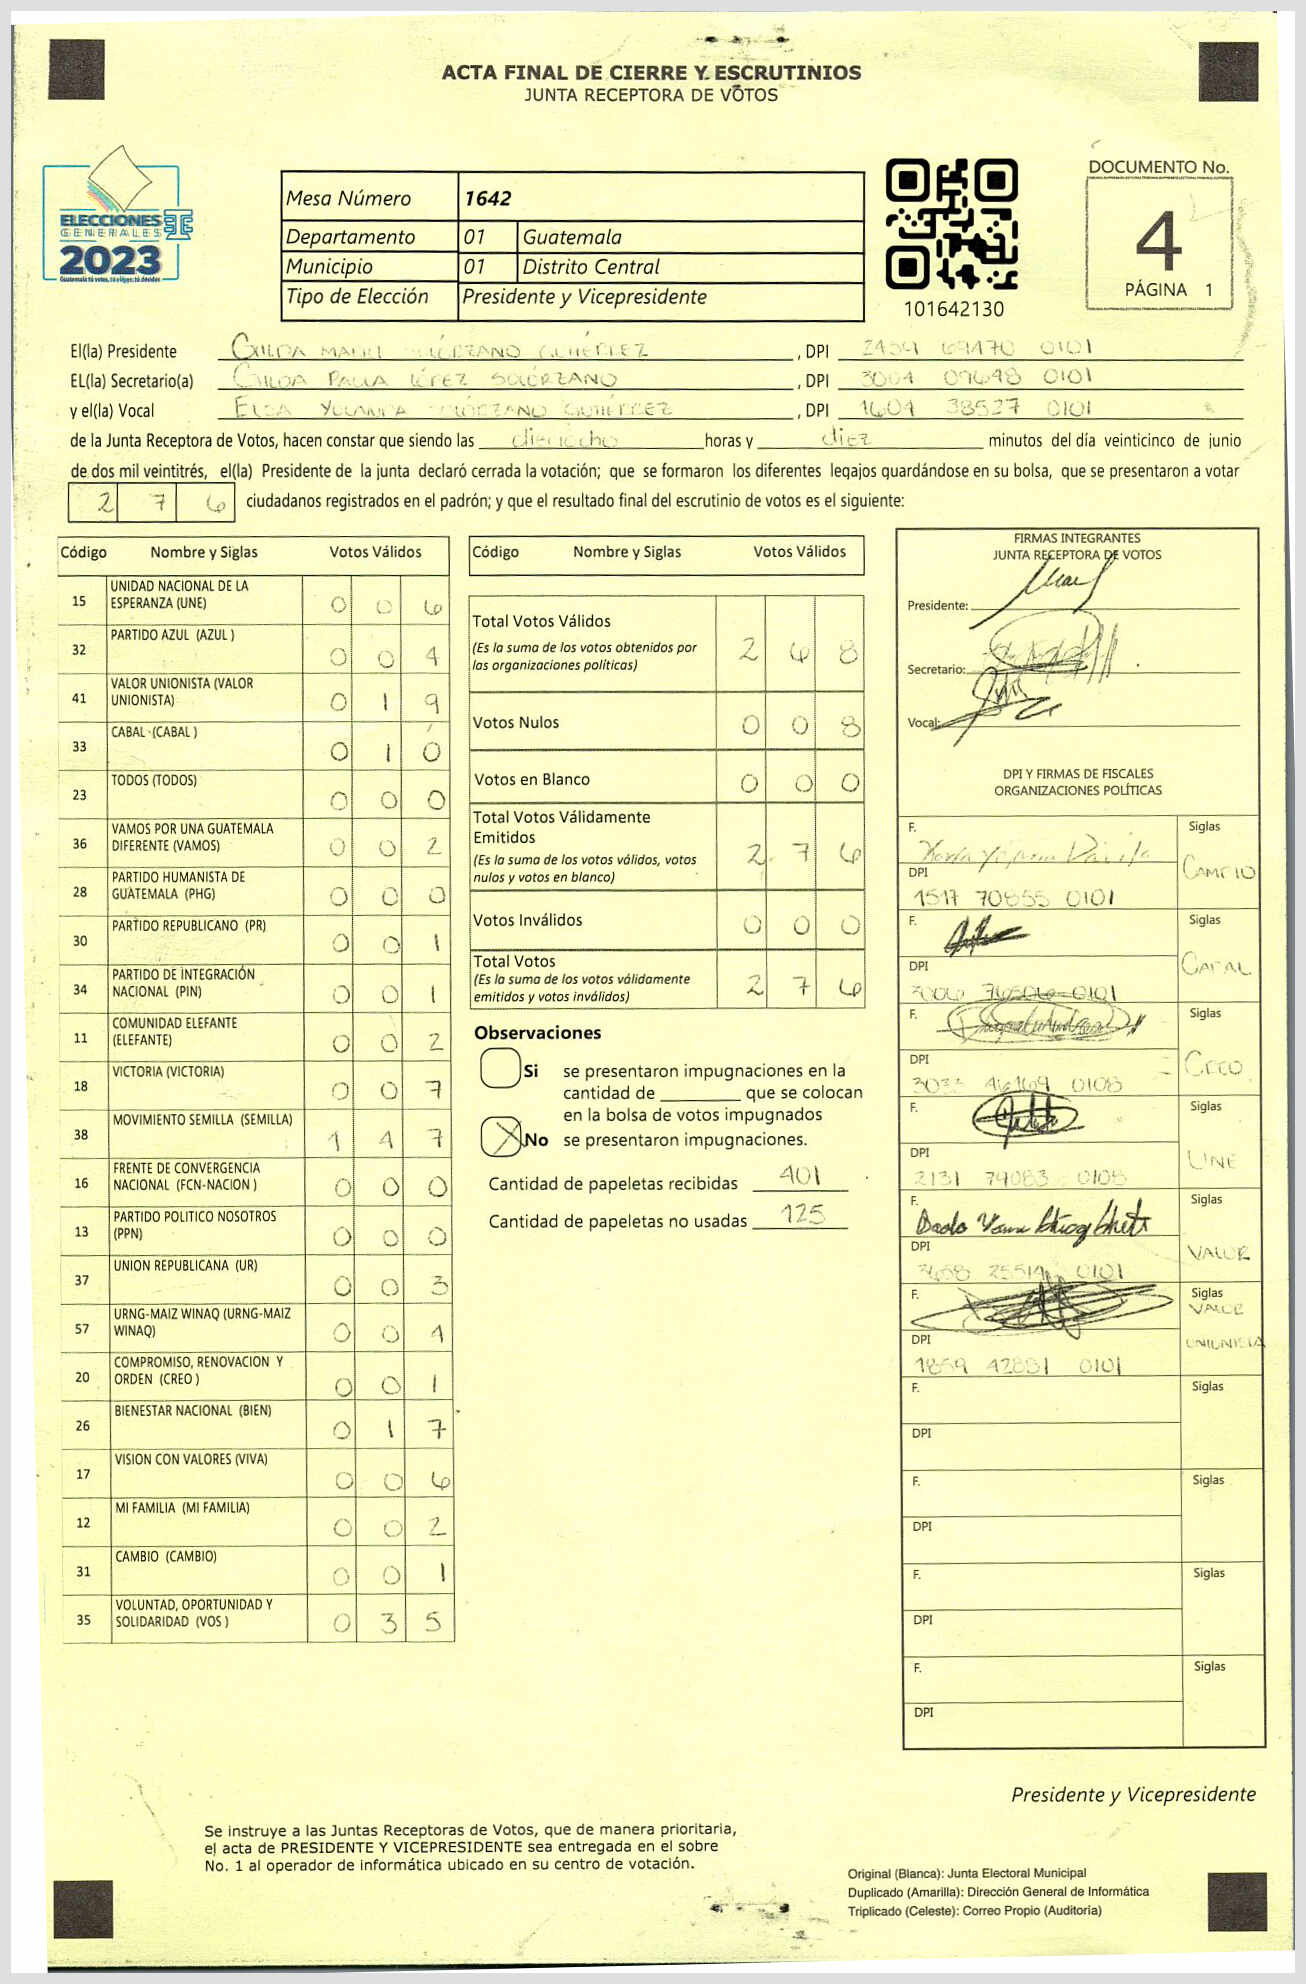 ACTA FINAL DE CIERRE Y ESCRUTINIOS
JUNTA RECEPTORA DE VOTOS
ELECCIONES
GENERALES
2023
Guatemala tú votas, tú eliges, tú decides
Mesa Número 1642
Departamento 01 Guatemala
Municipio 01 Distrito Central
Tipo de Elección Presidente y Vicepresidente
101642130
DOCUMENTO No.
4
PÁGINA 1
El(la) Presidente GILDA SOLÓRZANO GUTIÉRREZ , DPI 0101
EL(la) Secretario(a) GILDA PAOLA LÓPEZ SOLÓRZANO , DPI 3004 0101
y el(la) Vocal ELSA YOLANDA SOLÓRZANO GUTIÉRREZ , DPI 1604 38527 0101
de la Junta Receptora de Votos, hacen constar que siendo las dieciocho horas y diez minutos del día veinticinco de junio
de dos mil veintitrés, el(la) Presidente de la junta declaró cerrada la votación; que se formaron los diferentes legajos guardándose en su bolsa, que se presentaron a votar
2 7 6 ciudadanos registrados en el padrón; y que el resultado final del escrutinio de votos es el siguiente:
Código Nombre y Siglas Votos Válidos
15 UNIDAD NACIONAL DE LA ESPERANZA (UNE) 0 0 6
32 PARTIDO AZUL (AZUL ) 0 0 4
41 VALOR UNIONISTA (VALOR UNIONISTA) 0 1 9
33 CABAL (CABAL ) 0 1 0
23 TODOS (TODOS) 0 0 0
36 VAMOS POR UNA GUATEMALA DIFERENTE (VAMOS) 0 0 2
28 PARTIDO HUMANISTA DE GUATEMALA (PHG) 0 0 0
30 PARTIDO REPUBLICANO (PR) 0 0 1
34 PARTIDO DE INTEGRACIÓN NACIONAL (PIN) 0 0 1
11 COMUNIDAD ELEFANTE (ELEFANTE) 0 0 2
18 VICTORIA (VICTORIA) 0 0 7
38 MOVIMIENTO SEMILLA (SEMILLA) 1 4 7
16 FRENTE DE CONVERGENCIA NACIONAL (FCN-NACION ) 0 0 0
13 PARTIDO POLITICO NOSOTROS (PPN) 0 0 0
37 UNION REPUBLICANA (UR) 0 0 3
57 URNG-MAIZ WINAQ (URNG-MAIZ WINAQ) 0 0 4
20 COMPROMISO, RENOVACION Y ORDEN (CREO ) 0 0 1
26 BIENESTAR NACIONAL (BIEN) 0 1 7
17 VISION CON VALORES (VIVA) 0 0 6
12 MI FAMILIA (MI FAMILIA) 0 0 2
31 CAMBIO (CAMBIO) 0 0 1
35 VOLUNTAD, OPORTUNIDAD Y SOLIDARIDAD (VOS ) 0 3 5
Código Nombre y Siglas Votos Válidos
Total Votos Válidos 2 6 8
(Es la suma de los votos obtenidos por
las organizaciones políticas)
Votos Nulos 0 0 8
Votos en Blanco 0 0 0
Total Votos Válidamente
Emitidos 2 7 6
(Es la suma de los votos válidos, votos
nulos y votos en blanco)
Votos Inválidos 0 0 0
Total Votos 2 7 6
(Es la suma de los votos válidamente
emitidos y votos inválidos)
Observaciones
Si se presentaron impugnaciones en la
cantidad de ________ que se colocan
en la bolsa de votos impugnados
No se presentaron impugnaciones.
Cantidad de papeletas recibidas 401
Cantidad de papeletas no usadas 125
FIRMAS INTEGRANTES
JUNTA RECEPTORA DE VOTOS
Presidente:
Secretario:
Vocal:
DPI Y FIRMAS DE FISCALES
ORGANIZACIONES POLÍTICAS
F. Siglas
CAMBIO
DPI
1517 70855 0101
F. Siglas
CABAL
DPI
0101
F. Siglas
CREO
DPI
3033 46169 0108
F. Siglas
UNE
DPI
2131 74083 0108
F. Siglas
VALOR
DPI
0101
F. Siglas
VALOR
UNIONISTA
DPI
1859 42881 0101
F. Siglas
DPI
F. Siglas
DPI
F. Siglas
DPI
F. Siglas
DPI
Presidente y Vicepresidente
Se instruye a las Juntas Receptoras de Votos, que de manera prioritaria,
el acta de PRESIDENTE Y VICEPRESIDENTE sea entregada en el sobre
No. 1 al operador de informática ubicado en su centro de votación.
Original (Blanca): Junta Electoral Municipal
Duplicado (Amarilla): Dirección General de Informática
Triplicado (Celeste): Correo Propio (Auditoria)